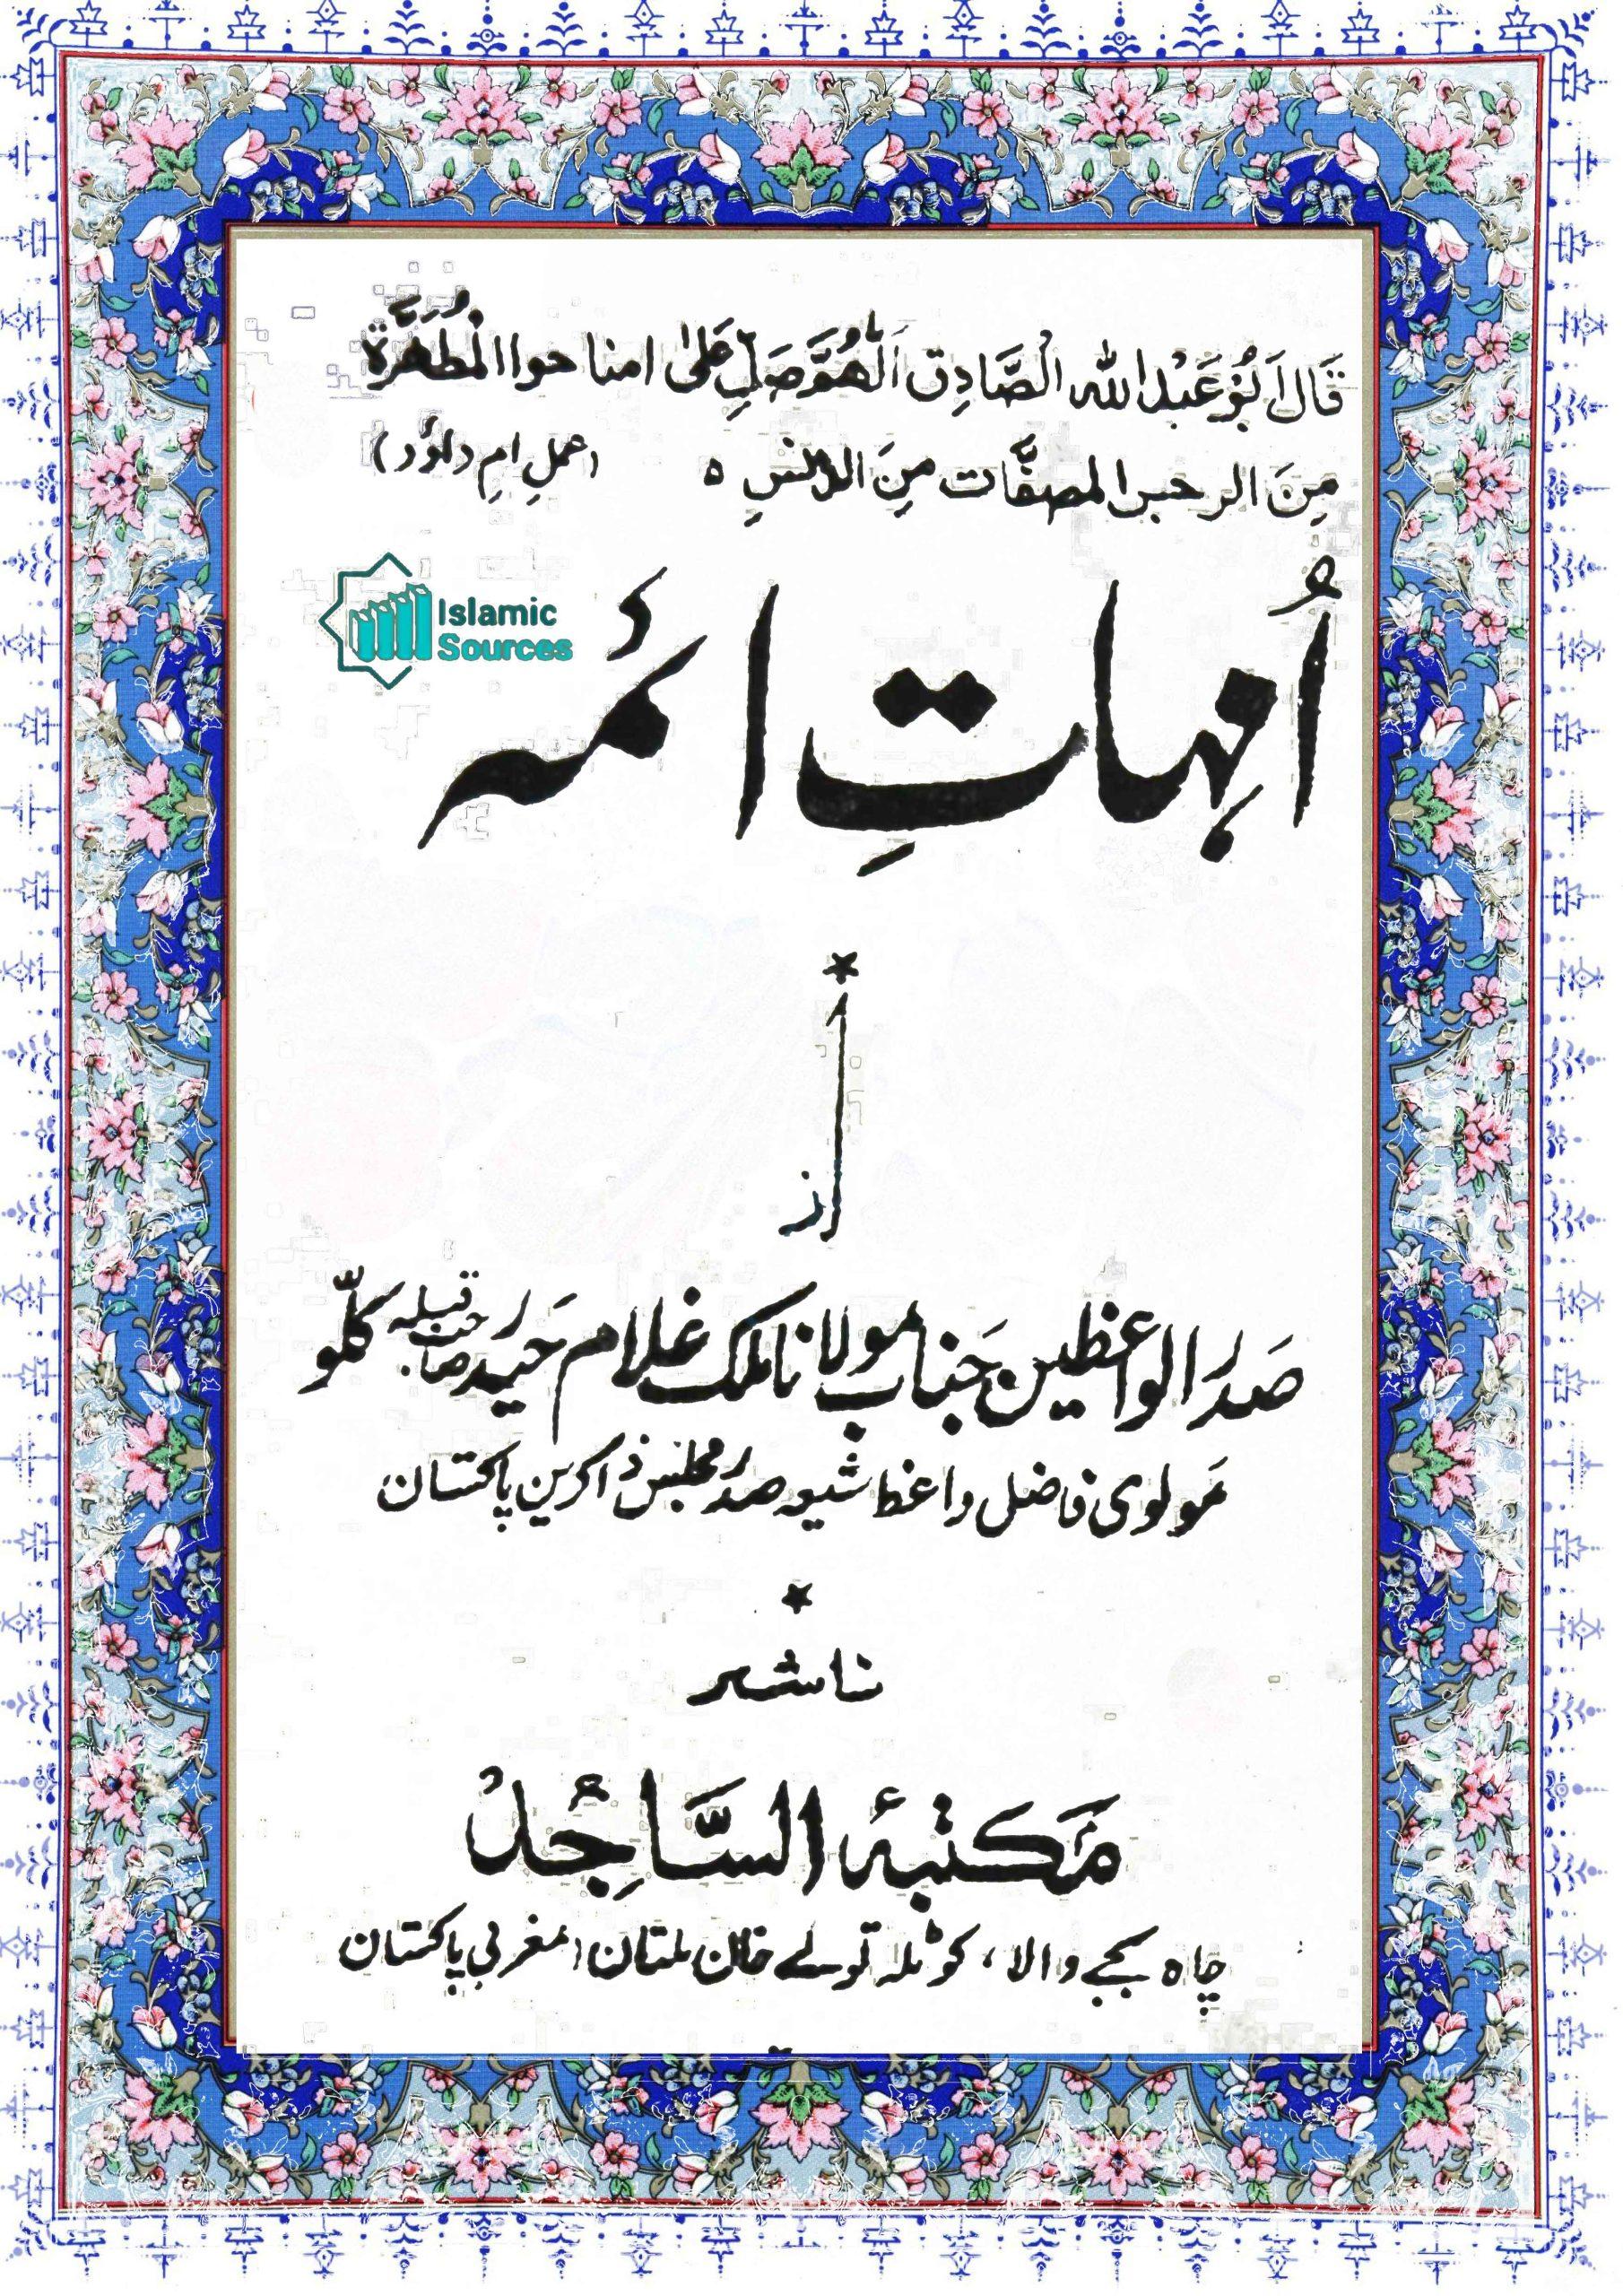 قَالَ اَبُوْ عَبْدِ اللہ الْصَّادِق اَللّٰهُمَّ صَلِّ عَلىٰ امنا حوا الْمُطَهَّرَةُ
مِنَ الرجس المصفّات مِنَ الدنسِ ہ (عملِ امِ داوٗد)
Islamic
Sources
اُمہاتِ ائمہ
از
صدر الواعظین جناب مولانا ملک غلام حیدر صاحب قبلہ کلّو
مولوی فاضل واعظ شیعہ صدر مجلس ذاکرین پاکستان
ناشر
مَکتبۂ السَّاجِدْ
چاہ بجے والا، کوٹلہ تولے خان ملتان، مغربی پاکستان